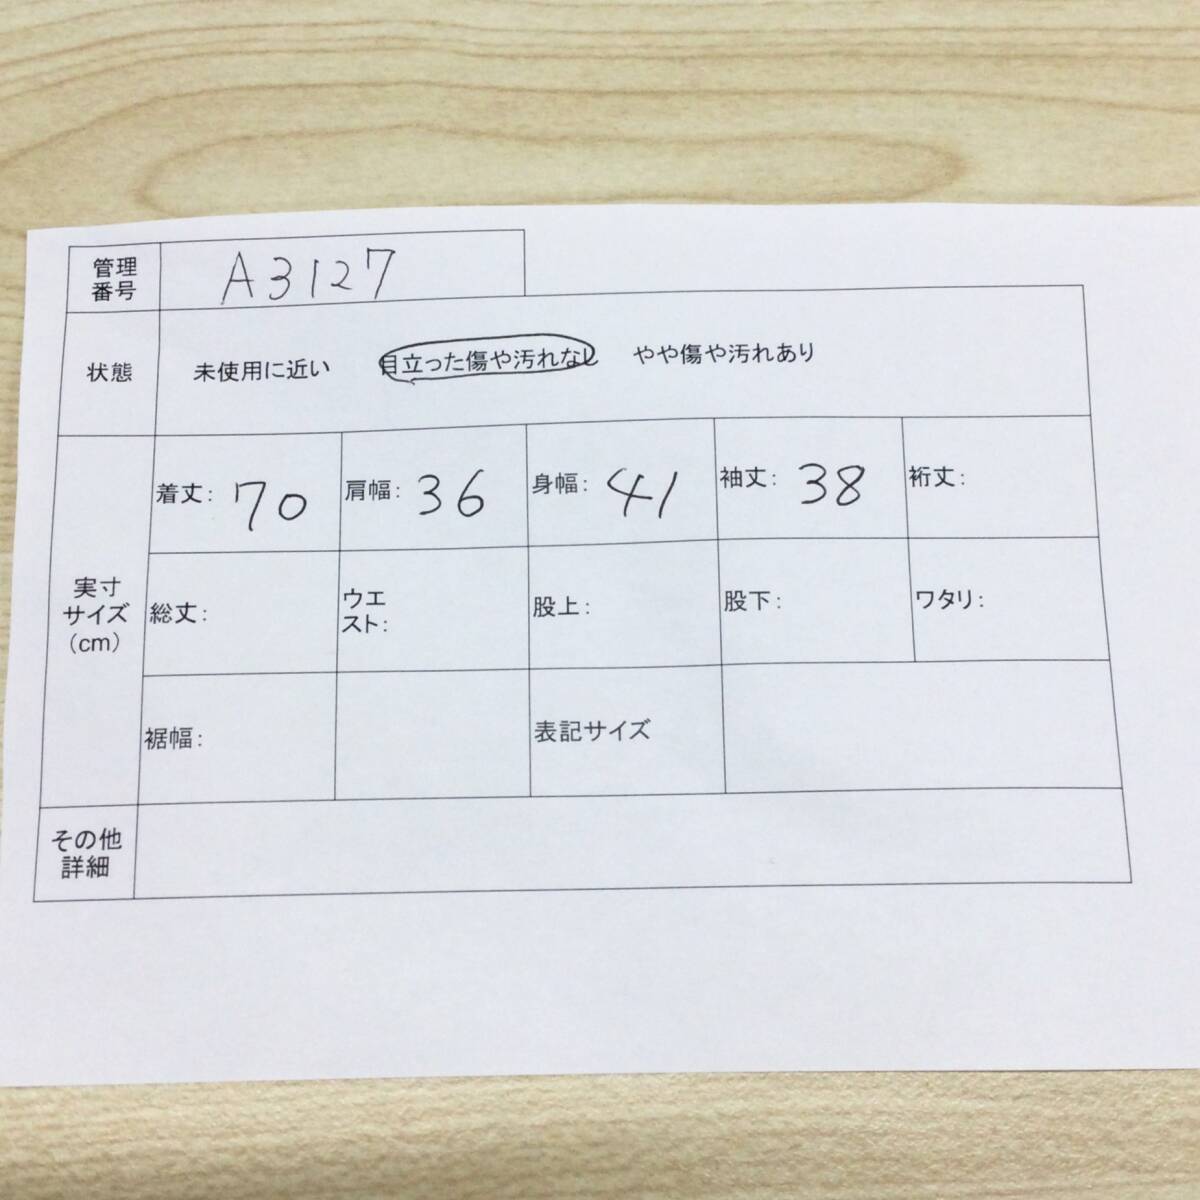 管理
番号
A3127
状態
未使用に近い 目立った傷や汚れなし やや傷や汚れあり
実寸
サイズ
(cm)
着丈: 70
肩幅: 36
身幅: 41
袖丈: 38
裄丈:
総丈:
ウエ
スト:
股上:
股下:
ワタリ:
裾幅:
表記サイズ
その他
詳細